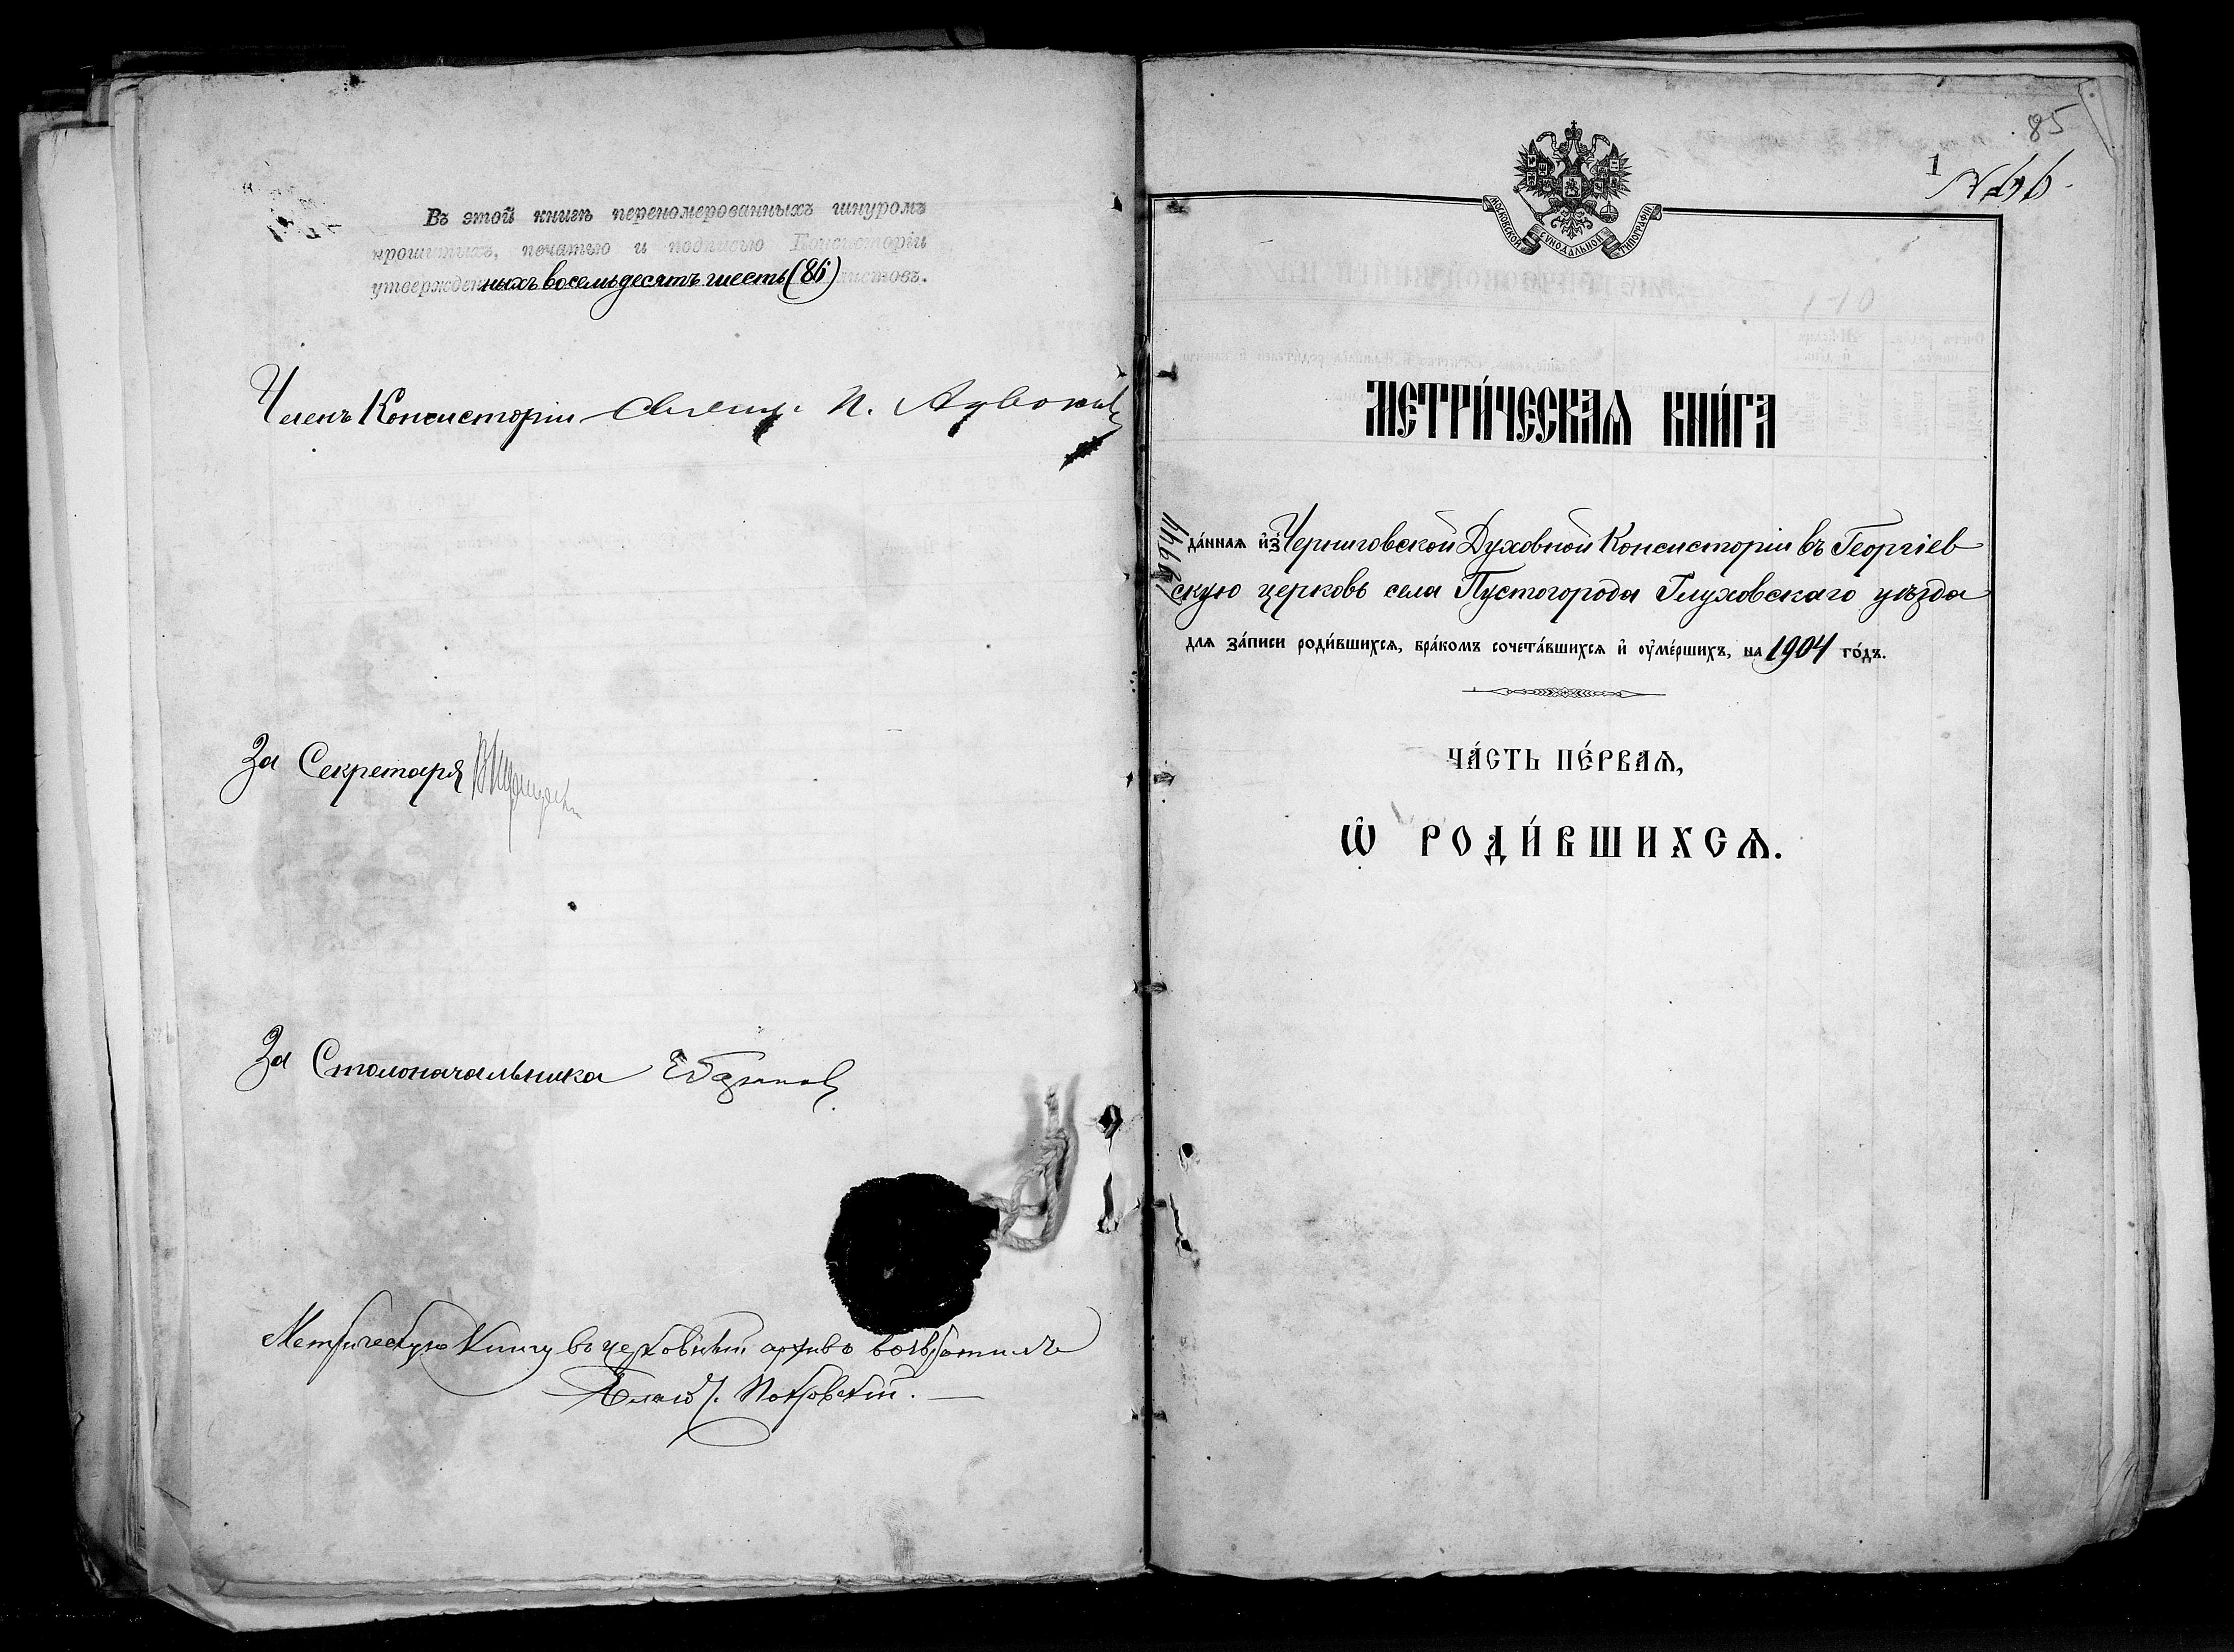 Въ этой книгѣ перенумерованныхъ шнуромъ
прошитыхъ, печатью и подписью Консисторіи
утвержденныхъ восемьдесятъ шесть (86) листовъ.
Членъ Консисторіи Священ. П.
За Секретаря
За Столоначальника
Метрическую Книгу въ церковный архивъ возвратилъ
Благоч. Покровскій.
85
1
МОСКОВСКОЙ СѴНОДАЛЬНОЙ ТИПОГРАФІИ
МЕТРИ́ЧЕСКАѦ КНИ́ГА
да́нная и҆з̾ Черниговской Духовной Консисторіи въ Георгіев
скую церковь села Пустогорода Глуховскаго уѣзда
для за́писи роди́вшихсѧ, бра́комъ сочета́вшихсѧ и҆ оу҆ме́ршихъ, на 1904 го́дъ.
ЧА́СТЬ ПЕ́РВАѦ,
Ѽ РОДИ́ВШИХСѦ.